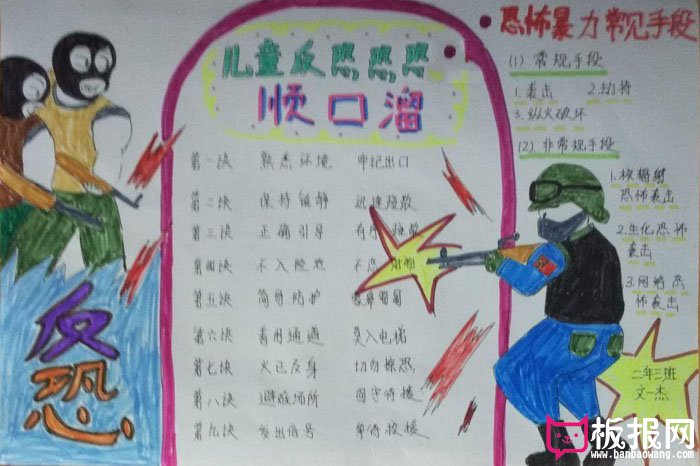 恐怖暴力常见手段
(1) 常规手段
1.袭击 2.劫持
3.纵火破坏
(2) 非常规手段
1.核辐射
恐怖袭击
2.生化恐怖
袭击
3.网络恐
怖袭击
儿童反恐
顺口溜
第一诀 熟悉环境 牢记出口
第二诀 保持镇静 迅速疏散
第三诀 正确引导 有序疏散
第四诀 不入险地 不恋财物
第五诀 简易防护 匍匐
第六诀 善用通道 莫入电梯
第七诀 火已及身 切勿惊恐
第八诀 避难场所 固守待援
第九诀 发出信号 等待救援
反恐
二年三班
文一杰
板报网
www.banbaowang.com